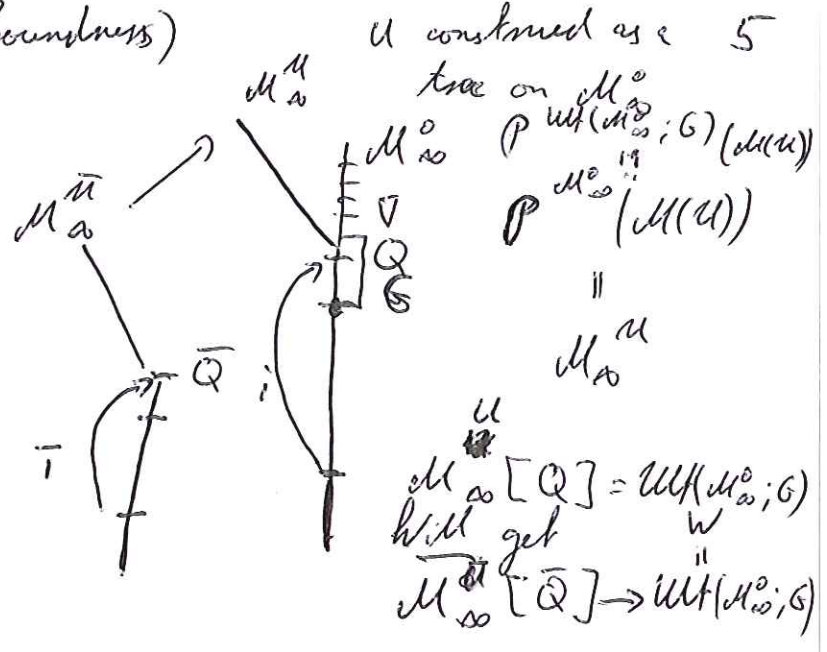 oundness) U construed as a 5
tree on M_∞^0
M_∞^U M_∞^0 P^{Ult(M_∞^0; G)}(M(U))
M_∞^{\bar{U}} ∇ = P^{M_∞^0}(M(U))
Q
G =
\bar{Q} i M_∞^U
\bar{i}
M_∞^U [Q] = Ult(M_∞^0; G)
Will get W =
\bar{M_∞^U} [\bar{Q}] → Ult(M_∞^0; G)